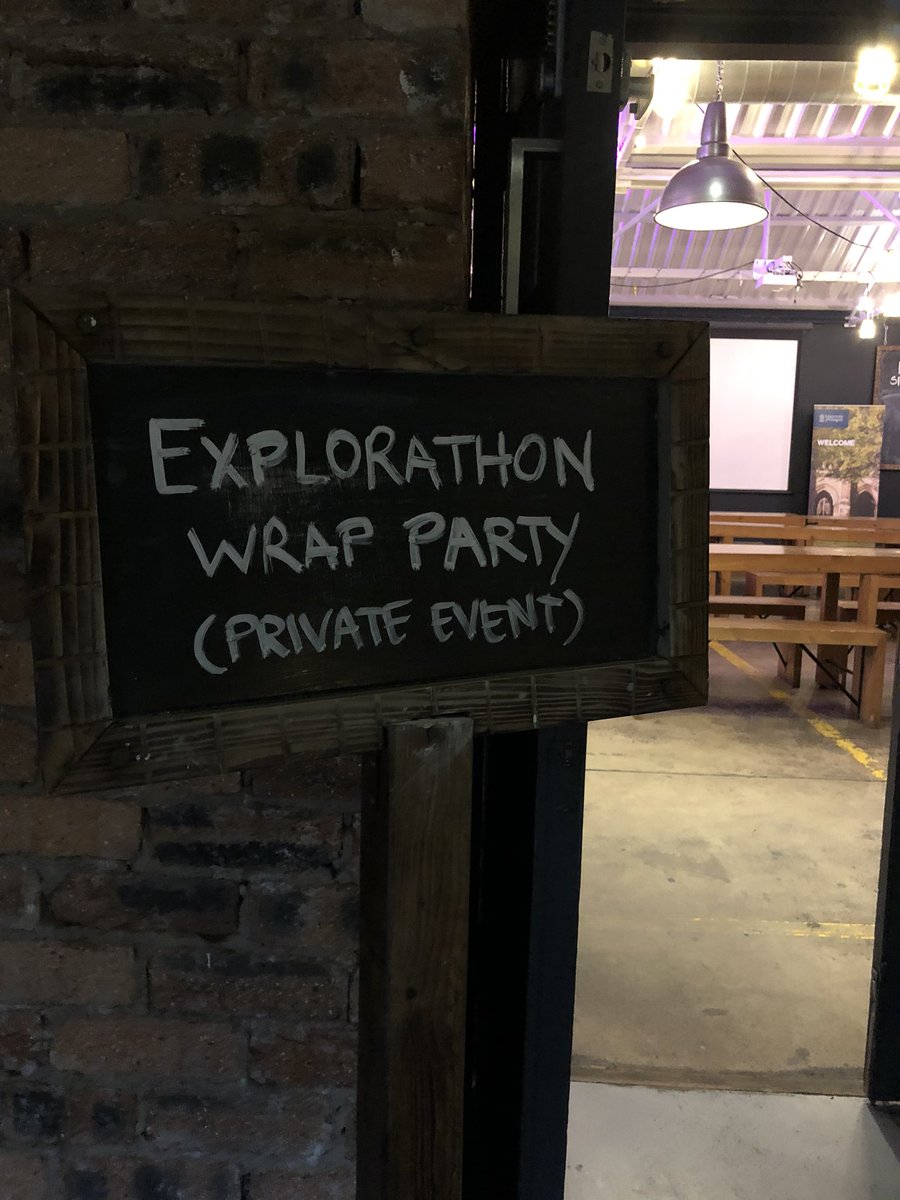 EXPLORATHON
WRAP PARTY
(PRIVATE EVENT)
WELCOME